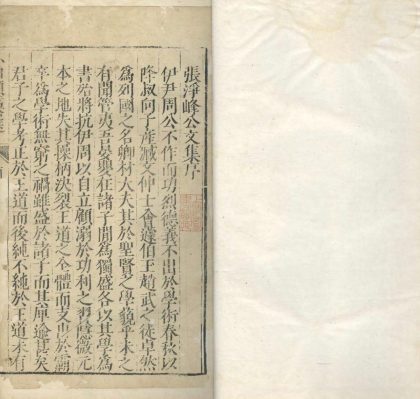 張淨峰公文集序
伊尹周公不作而功烈德義不出於學術春秋以
降叔向子產臧文仲士會蘧伯玉趙武之徒卓然
為列國之名卿材大夫其於聖賢之學藐乎未之
有聞管夷吾晏嬰在諸子間為獨盛各以其學為
書始將抗伊周以自立顧溺於功利之習隳微元
本之地失其操柄決裂王道之全體而支東於霸
章為學術無窮之禍雖盛於諸子而其犀逾甚矣
君子之學考正於王道而後純不純於王道未有